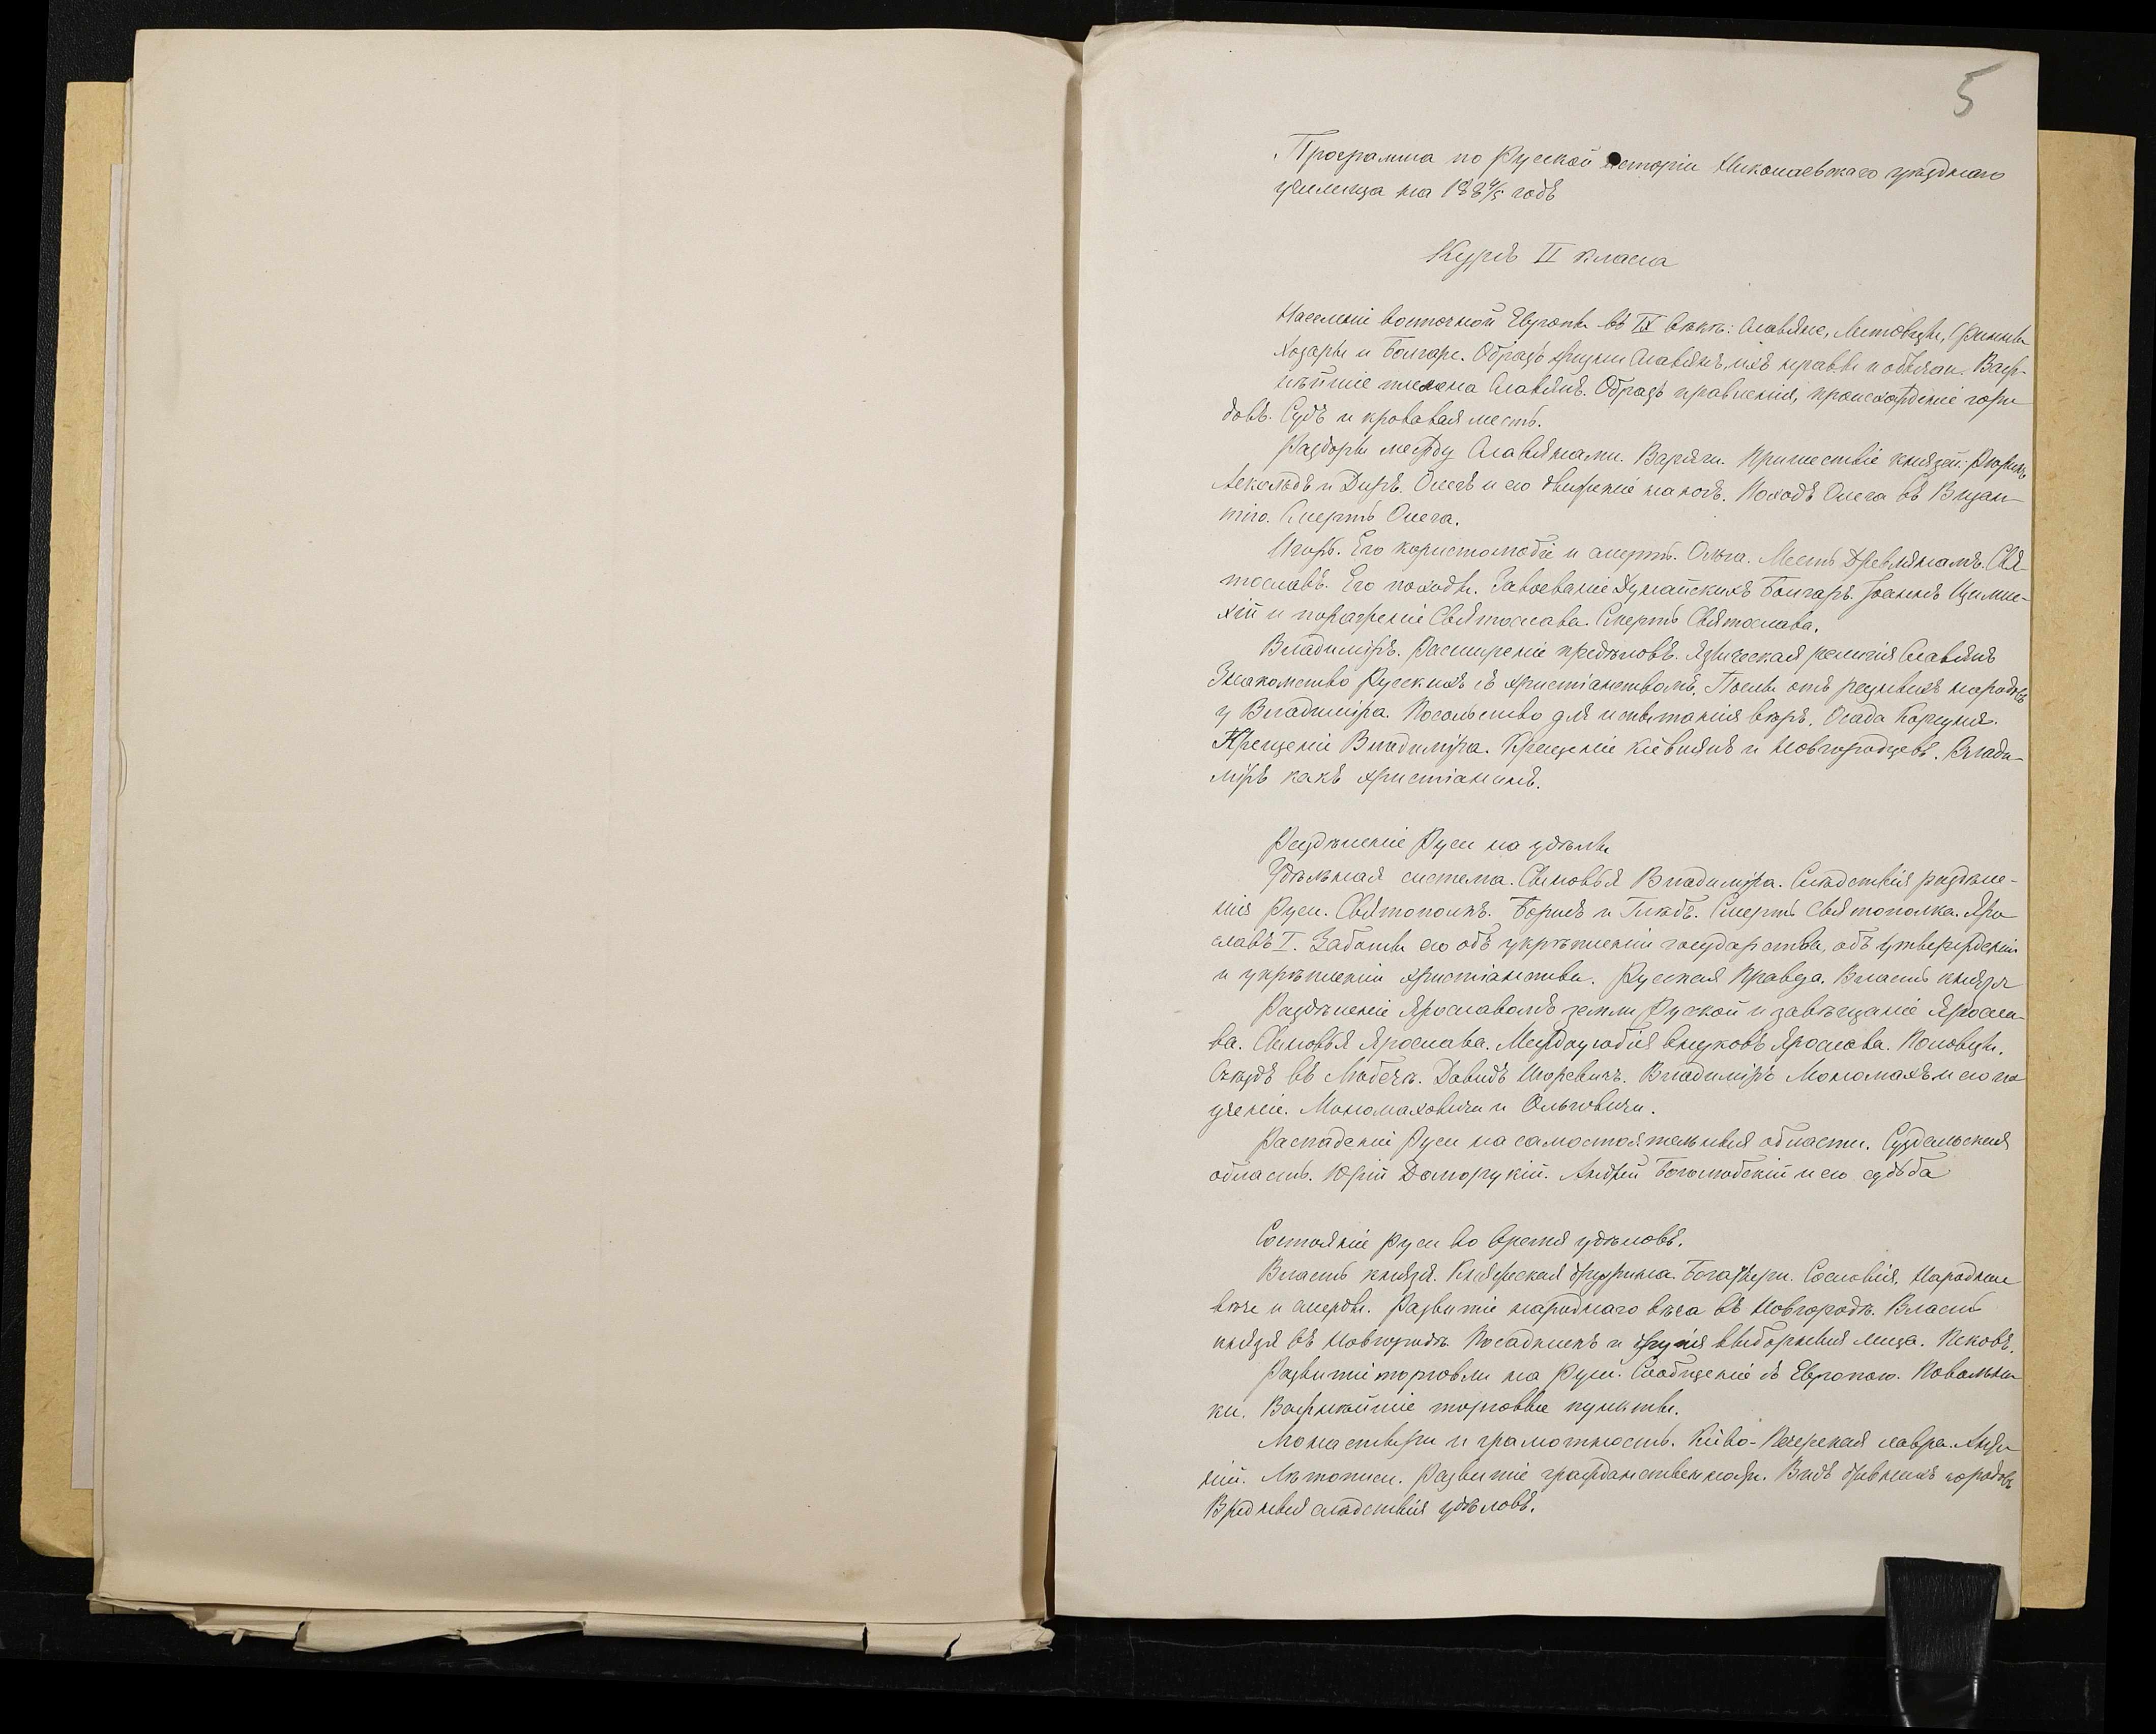 5
Программа по Русской исторіи Николаевскаго уѣзднаго
училища на 188 4/5 годъ
Курсъ II класса
Населеніе восточной Европы въ IX вѣкѣ: Славяне, Литовцы, Финны
Хозары и Болгаре. Образъ жизни Славянъ, ихъ нравы и обычаи. Важ-
нѣйшіе племена Славянъ. Образъ правленія, происхожденіе горо
довъ. Судъ и кровавая месть.
Раздоры между Славянами. Варяги. Пришествіе князей: Рюрикъ
Аскольдъ и Диръ. Олегъ и его движеніе на югъ. Походъ Олега въ Визан-
тію. Смерть Олега.
Игорь. Его користолюбіе и смерть. Ольга. Месть Древлянамъ. Свя-
тославъ. Его походы. Завоеваніе Дунайскихъ Болгаръ. Іоаннъ Цимис-
хій и пораженіе Святослава. Смерть Святослава.
Владиміръ. Расширеніе предѣловъ. Языческая религія Славянъ
Знакомство Русскихъ съ христіанствомъ. Послы отъ разныхъ народовъ
у Владиміра. Посольство для испытанія вѣръ. Осада Корсуня.
Крещеніе Владиміра. Крещеніе кіевлянъ и Новгородцевъ. Влади-
міръ какъ христіанинъ.
Раздѣленіе Руси на удѣлы
Удѣльная система. Сыновья Владиміра. Слѣдствія раздѣле-
нія Руси. Святополкъ. Борисъ и Глѣбъ. Смерть Святополка. Яро
славъ I. Заботы его объ укрѣпленіи государства, объ утвержденіи
и укрѣпленіи христіанства. Русская Правда. Власть князя
Раздѣленіе Ярославомъ земли Руской и завѣщаніе Яросла-
ва. Сыновья Ярослава. Междоусобія внуковъ Ярослава. Половцы.
Съѣздъ въ Любечѣ. Давидъ Игоревичъ. Владиміръ Мономахъ и его по
ученіе. Мономаховичи и Ольговичи.
Распаденіе Руси на самостоятельныя области. Суздальская
область. Юрій Долгорукій. Андрей Боголюбскій и его судьба
Состояніе Руси во время удѣловъ.
Власть князя. Княжеская дружина. Богатыри. Сословія. Народное
вѣче и смерды. Развитіе народнаго вѣча въ Новгородѣ. Власть
князя въ Новгородѣ. Посадникъ и другія выборныя лица. Псковъ.
Развитіе торговли на Руси. Сообщеніе съ Европою. Повольни
ки. Важнѣйшіе торговые пункты.
Монастыри и грамотность. Кіево-Печерская лавра. Анто
ній. Лѣтописи. Развитіе гражданственности. Видъ древнихъ городовъ
Вредныя слѣдствія удѣловъ.